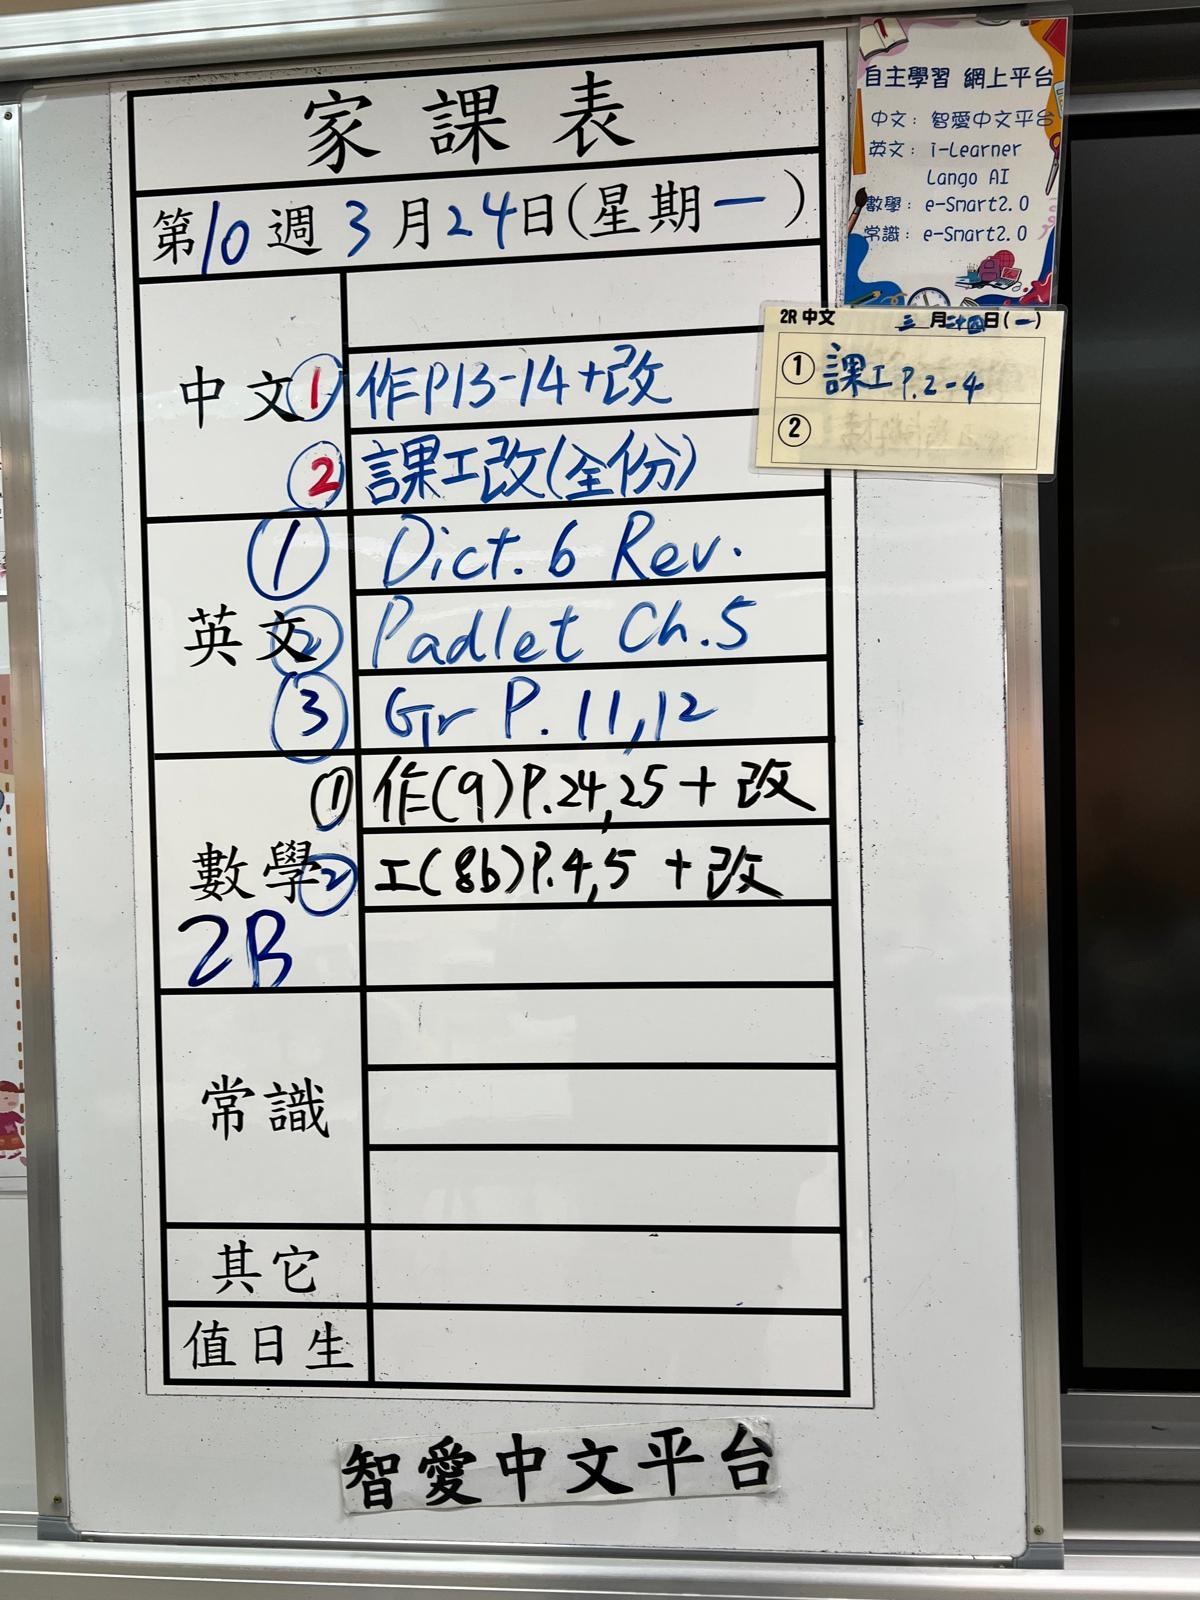 家課表
第10週3月24日(星期一)
中文
① 作P13-14+改
② 課工改(全份)
英文
① Dict. 6 Rev.
② Padlet Ch.5
③ Gr P. 11,12
數學
① 作(9)P.24,25 + 改
② 工(8b)P.4,5 + 改
2B
常識
其它
值日生
智愛中文平台
自主學習 網上平台
中文: 智愛中文平台
英文: i-Learner
Lango AI
數學: e-Smart2.0
常識: e-Smart2.0
2R 中文 三月二十四日(一)
① 課工P.2-4
②